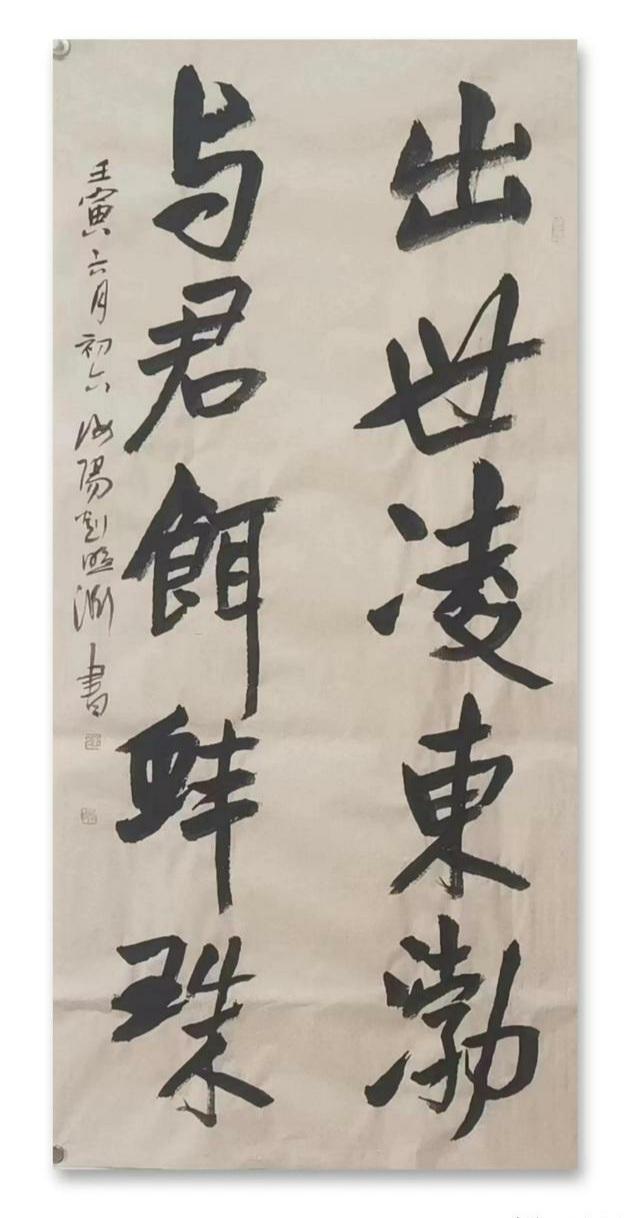 出世凌東渤
与君餌蚌珠
壬寅六月初六汝陽彭照渊書